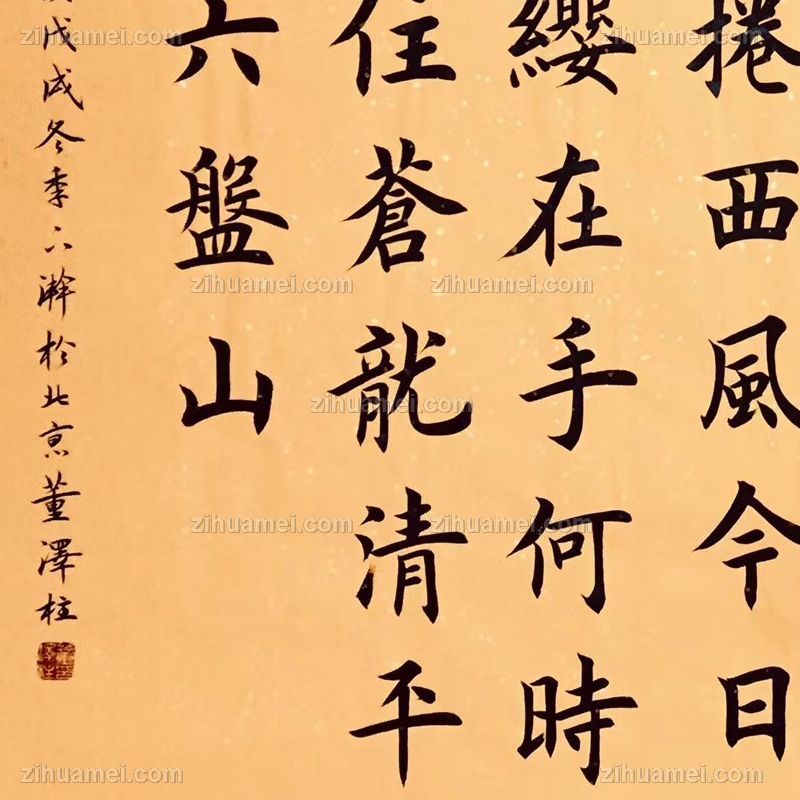 捲西風今日
纓在手何時
住蒼龍清平
六盤山
戊戌冬季六澣於北京董澤柱
zihuamei.com